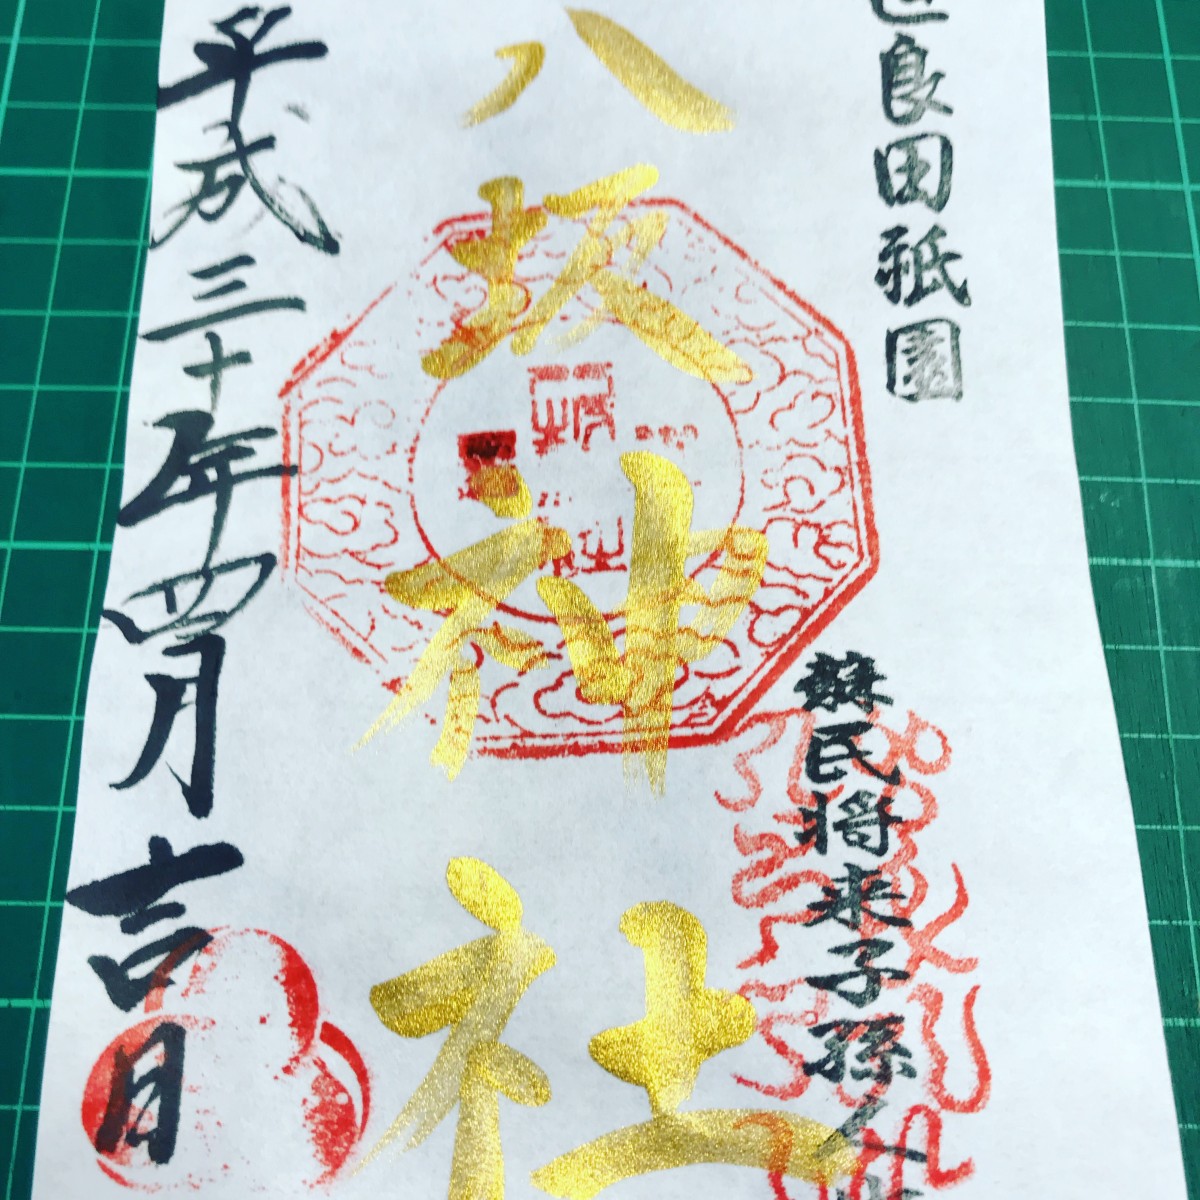 世良田祇園
蘇民将来子孫人也
八坂神社
平成三十年四月吉日